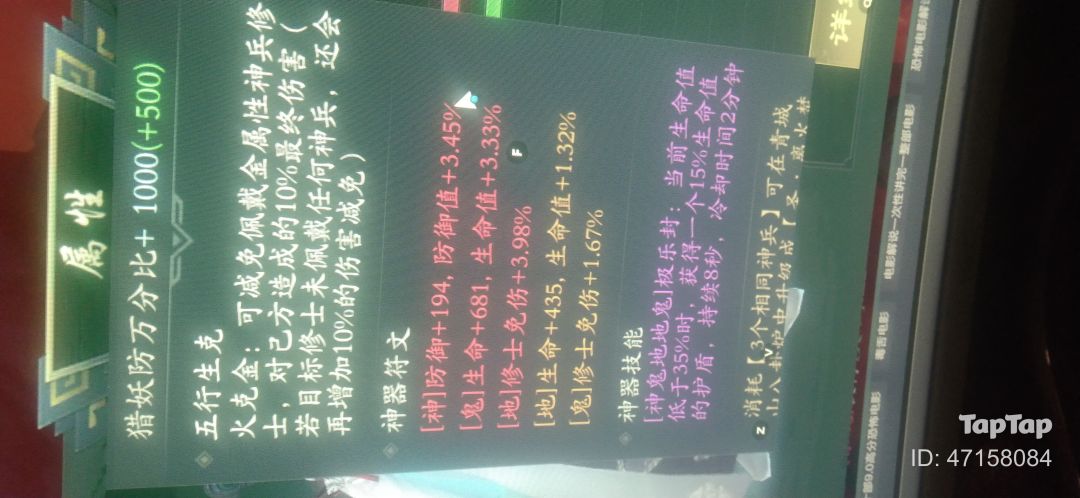 属性
详
猎妖防万分比+ 1000(+500)
五行生克
火克金：可减免佩戴金属性神兵修
士，对己方造成的10%最终伤害（
若目标修士未佩戴任何神兵，还会
再增加10%的伤害减免）
神器符文
[神]防御+194, 防御值+3.45%
[鬼]生命+681, 生命值+3.33%
[地]修士免伤+3.98%
[地]生命+435, 生命值+1.32%
[鬼]修士免伤+1.67%
F
神器技能
[神鬼地地鬼]极乐封：当前生命值
低于35%时，获得一个15%生命值
的护盾，持续8秒，冷却时间2分钟
消耗【3个相同神兵】可在青城
山八卦炉中升级成【圣·
Z
V
一部9.0高分恐怖电影
毒舌电影
电影解说一次性讲完一整部电影
恐怖电影解说
TapTap
ID: 47158084